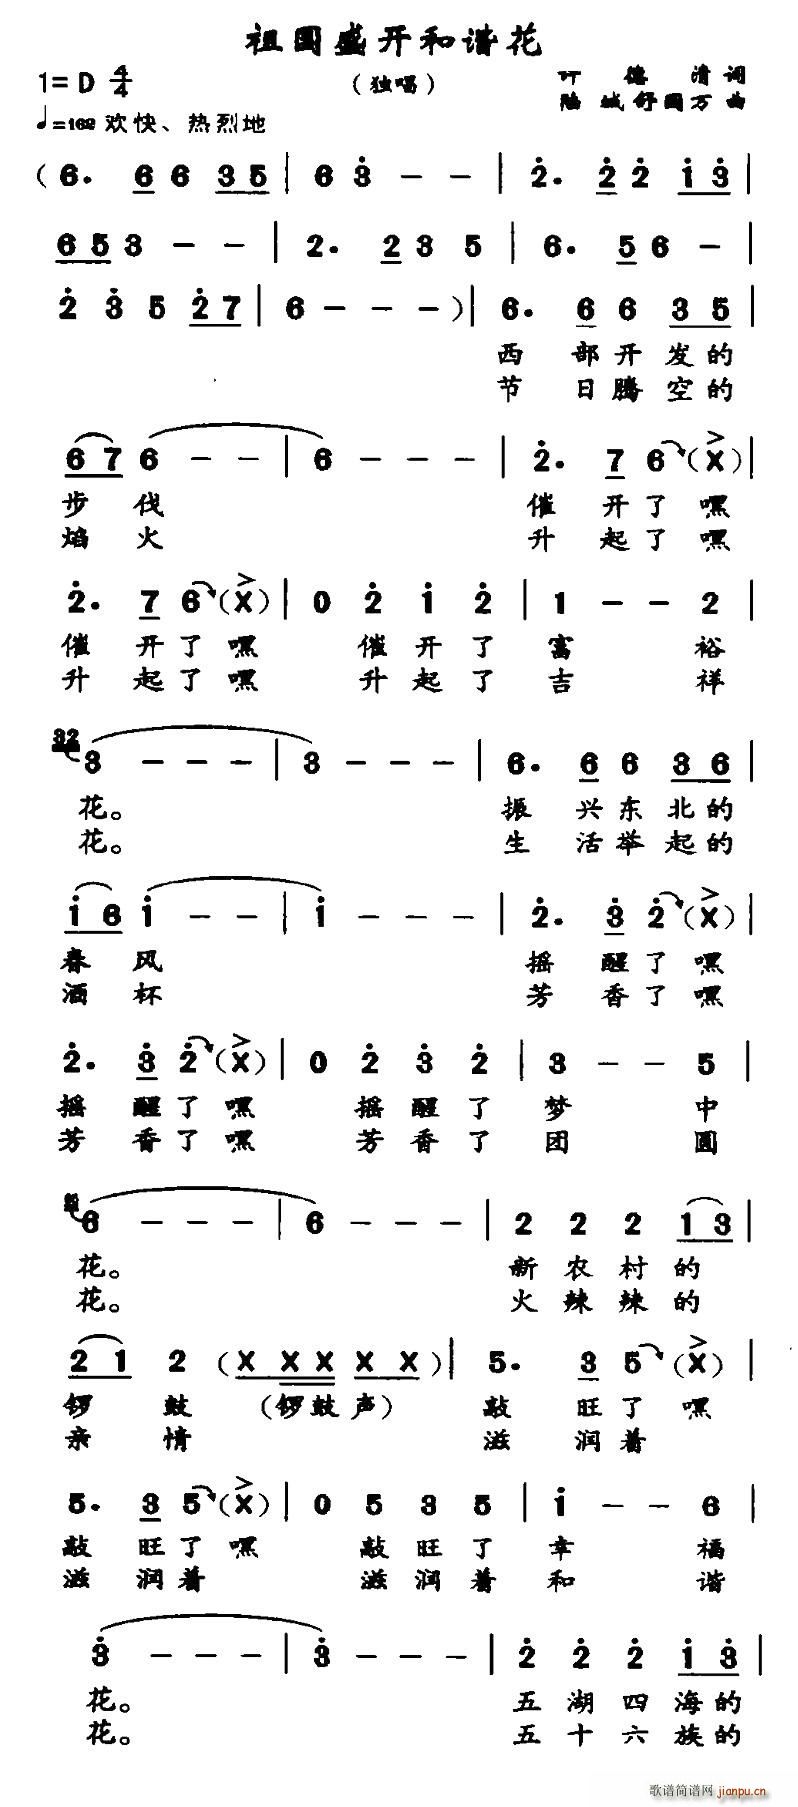 祖国盛开和谐花
1=D 4/4
（独唱）
叶德清词
陆城舒国万曲
♩=162 欢快、热烈地
(6. 6 6 3 5 | 6 3 - - | 2. 2 2 1 3 |
6 5 3 - - | 2. 2 3 5 | 6. 5 6 - |
2 3 5 2 7 | 6 - - - ) | 6. 6 6 3 5 |
西部开发的
节日腾空的
6 7 6 - - | 6 - - - | 2. 7 6 (X) |
步伐 催开了嘿
焰火 升起了嘿
2. 7 6 (X) | 0 2 1 2 | 1 - - 2 |
催开了嘿 催开了富裕
升起了嘿 升起了吉祥
32 3 - - - | 3 - - - | 6. 6 6 3 6 |
花。 振兴东北的
花。 生活举起的
1 6 1 - - | 1 - - - | 2. 3 2 (X) |
春风 摇醒了嘿
酒杯 芳香了嘿
2. 3 2 (X) | 0 2 3 2 | 3 - - 5 |
摇醒了嘿 摇醒了梦中
芳香了嘿 芳香了团圆
6 - - - | 6 - - - | 2 2 2 1 3 |
花。 新农村的
花。 火辣辣的
2 1 2 (X X X X X) | 5. 3 5 (X) |
锣鼓 （锣鼓声） 敲旺了嘿
亲情 滋润着
5. 3 5 (X) | 0 5 3 5 | 1 - - 6 |
敲旺了嘿 敲旺了幸福
滋润着 滋润着和谐
3 - - - | 3 - - - | 2 2 2 1 3 |
花。 五湖四海的
花。 五十六族的
歌谱简谱网 jianpu.cn